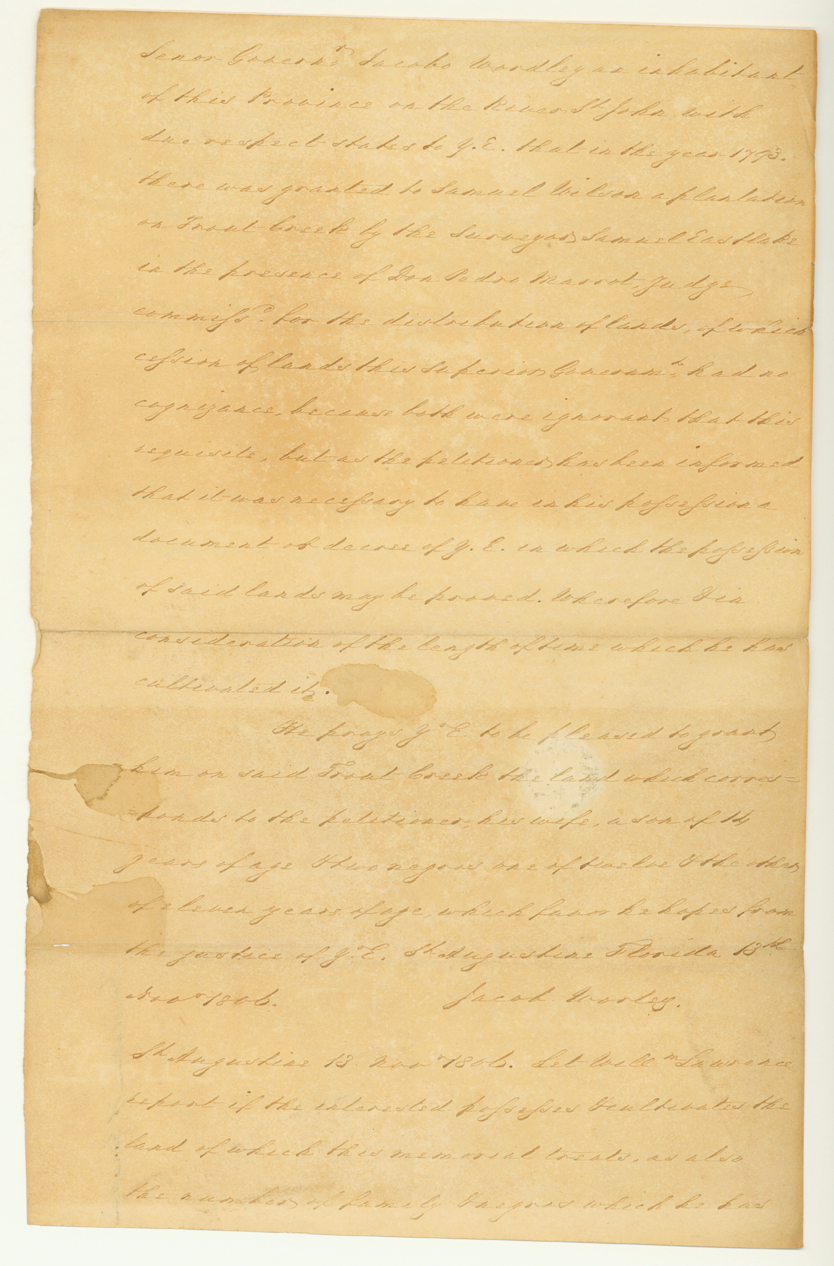 Senor Governr. Jacobo Woodley an inhabitant
of this Province on the River St. John, with
due respect states to Y.E. that in the year 1793.
there was granted to Samuel Wilson a plantation
on Trout Creek by the Surveyor Samuel Eastlake
in the presence of Don Pedro Marrot, Judge
commissd. for the distribution of lands, of which
cession of lands this Superior Governmt. had no
cognizance, because both were ignorant that this
requisite, but as the petitioner has been informed
that it was necessary to have in his possession a
document or decree of Y.E. in which the possession
of said lands may be proved. Wherefore & in
consideration of the length of time which he has
cultivated it.
He prays Y.E. to be pleased to grant
him on said Trout Creek the land which corres=
=ponds to the petitioner, his wife, a son of 14
years of age & two negros one of twelve & the other
of eleven years of age, which favor he hopes from
the justice of Y.E. St. Augustine Florida 13th
Novr. 1806. Jacob Worley.
St. Augustine 13 Novr. 1806. Let Willm. Lawrence
report if the interested possesses & cultivates the
land of which this memorial treats, as also
the number of family & negros which he has